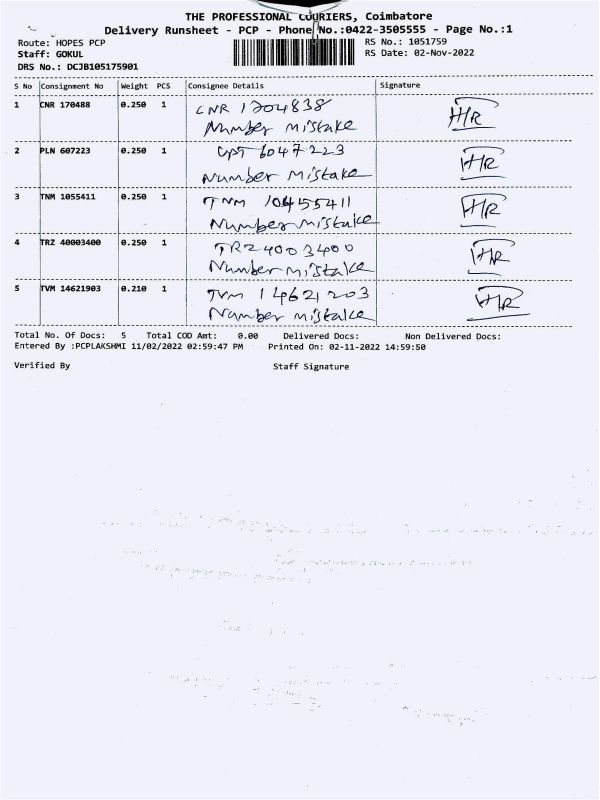 THE PROFESSIONAL COURIERS, Coimbatore
Delivery Runsheet - PCP - Phone No.:0422-3505555 - Page No.:1
Route: HOPES PCP RS No.: 1051759
Staff: GOKUL RS Date: 02-Nov-2022
DRS No.: DCJB105175901
S No Consignment No Weight PCS Consignee Details Signature
1 CNR 170488 0.250 1 CNR 1704838 HR
Number mistake
2 PLN 607223 0.250 1 6047223 HR
Number mistake
3 TNM 1055411 0.250 1 TNM 10455411 HR
Number mistake
4 TRZ 40003400 0.250 1 TRZ 4003400 HR
Number mistake
5 TVM 14621903 0.210 1 TVM 14621203 HR
Number mistake
Total No. Of Docs: 5 Total COD Amt: 0.00 Delivered Docs: Non Delivered Docs:
Entered By :PCPLAKSHMI 11/02/2022 02:59:47 PM Printed On: 02-11-2022 14:59:50
Verified By Staff Signature